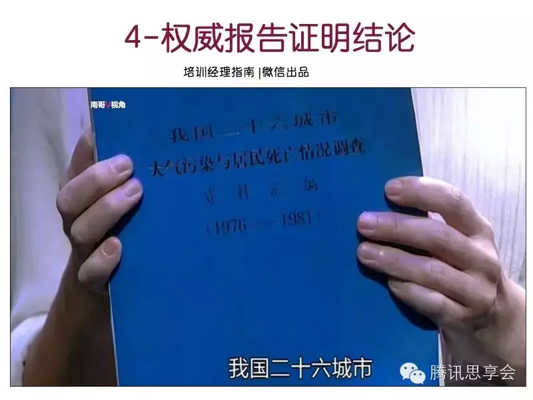 4-权威报告证明结论
培训经理指南 |微信出品
南哥V视角
我国二十六城市
大气污染与居民死亡情况调查
(1976——1981)
我国二十六城市
腾讯思享会